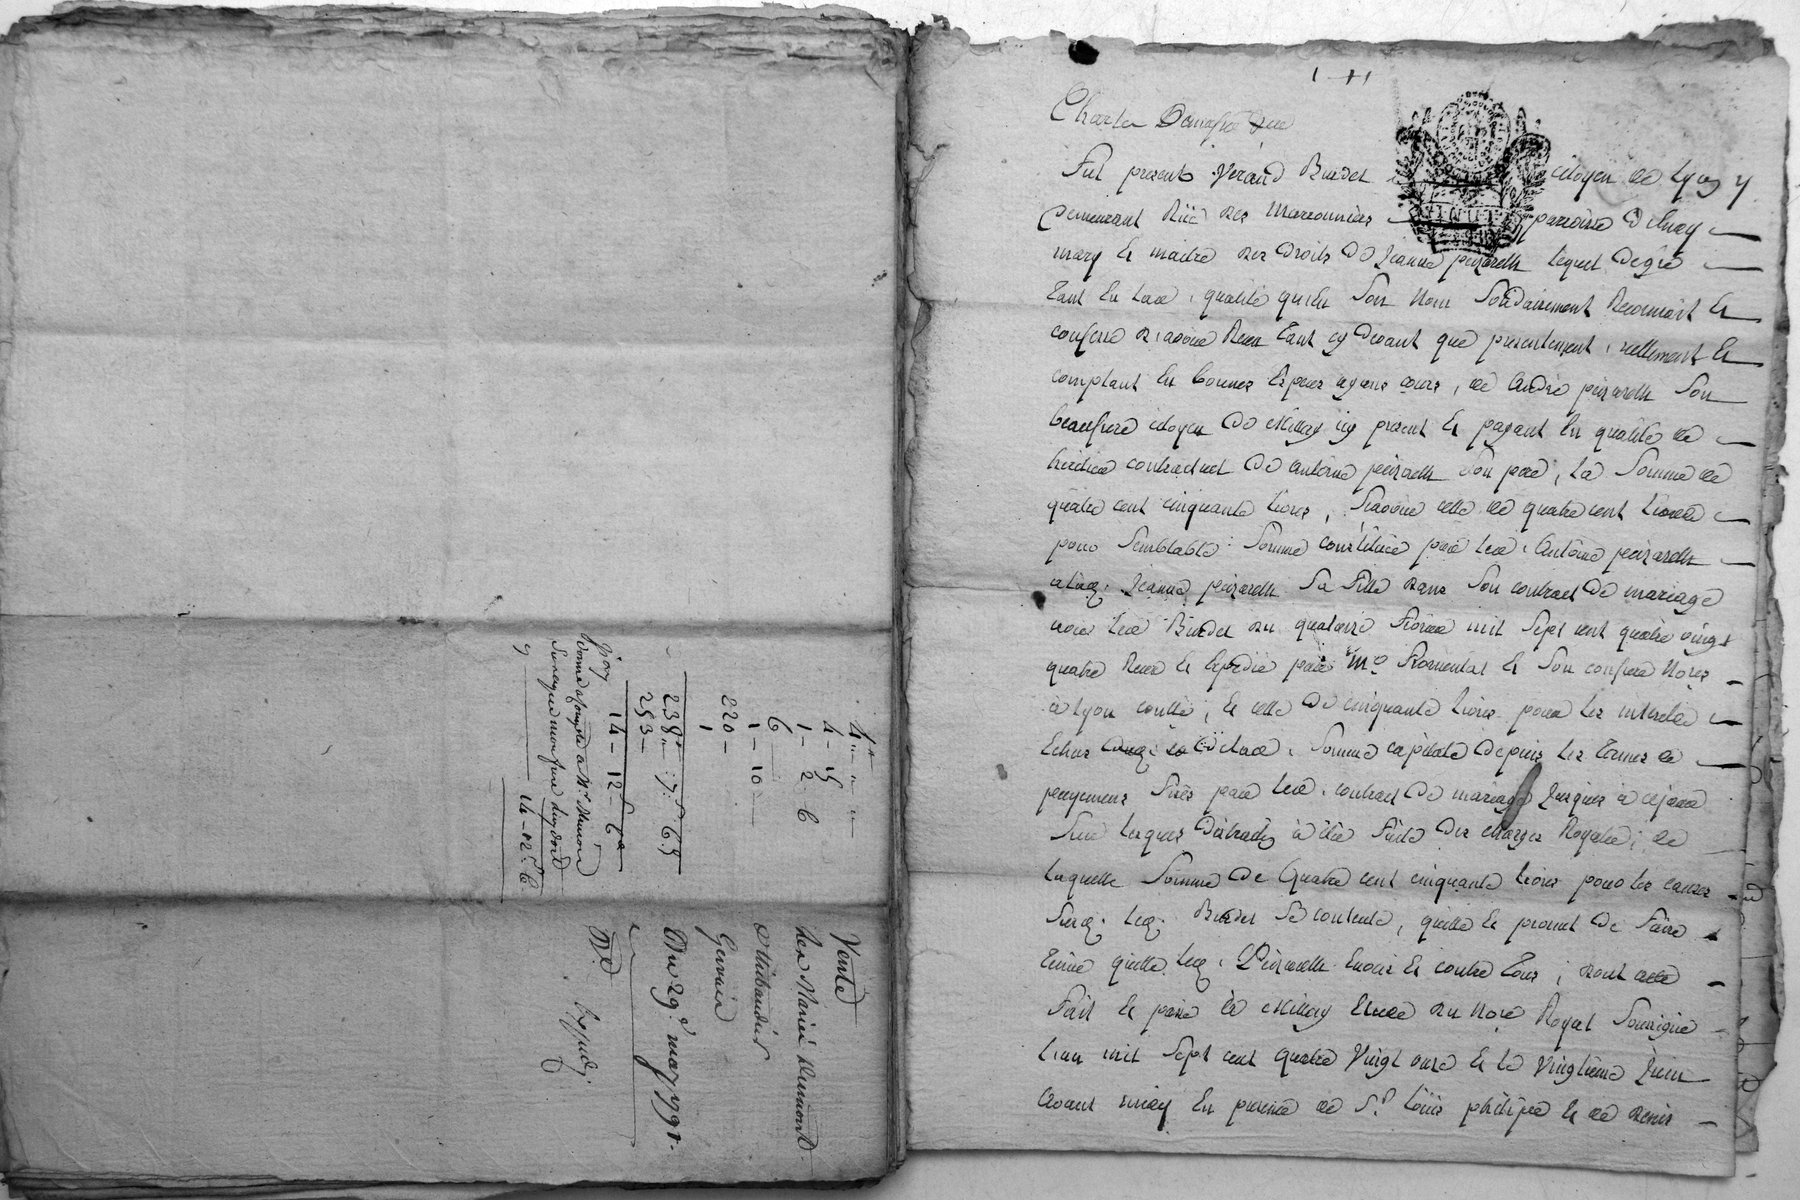 Vente
Gervais
Du 29e may 1791
Expédz.
4 - 15
1 - 2 - 6
6
1 - 10
220 -
1
238 - 7 - 6
253 -
14 - 12 - 6
Fut présent Véraud Burdet citoyen de Lyon y
demeurant Rüe des Marronniers paroisse d'Ainay
mary et maitre des droits de Jeanne peizarelle lequel de gré
tant en lade. qualité qu'en son nom solidairement Reconnoit et
confesse avoir Reçu tant cy devant que présentement, réellement et
comptant en bonnes espèces ayans cours, de André peizarelle son
beaufrere citoyen de Millery icy présent et payant en qualité de
héritier contractuel de Antoine peizarelle son père, la somme de
quatre cent cinquante livres, sçavoir celle de quatre cent livres
pour semblable somme constituée par led. Antoine peizarelle
à lad. Jeanne peizarelle sa fille dans son contract de mariage
avec led. Burdet du quatorze février mil sept cent quatre vingt
quatre Reçu et expédié par Me Fromental et son confrere Nores
à Lyon contlé, et celle de cinquante livres pour les intérêts
échus de lade. somme capitale depuis les termes de
payemens fixés par led. contract de mariage jusques à ce jour
sur lesquels déduction a été faite des charges Royales; de
laquelle somme de quatre cent cinquante livres pour les causes
susd. led. Burdet se contente, quitte et promet de faire
tenir quitte led. Peizarelle envers et contre tous; dont acte
fait et passé à Millery Etude du Nore Royal soussigné
l'an mil sept cent quatre vingt onze et le vingtieme juin
avant midy en présence de Sr. Loüis philipe et de Denis